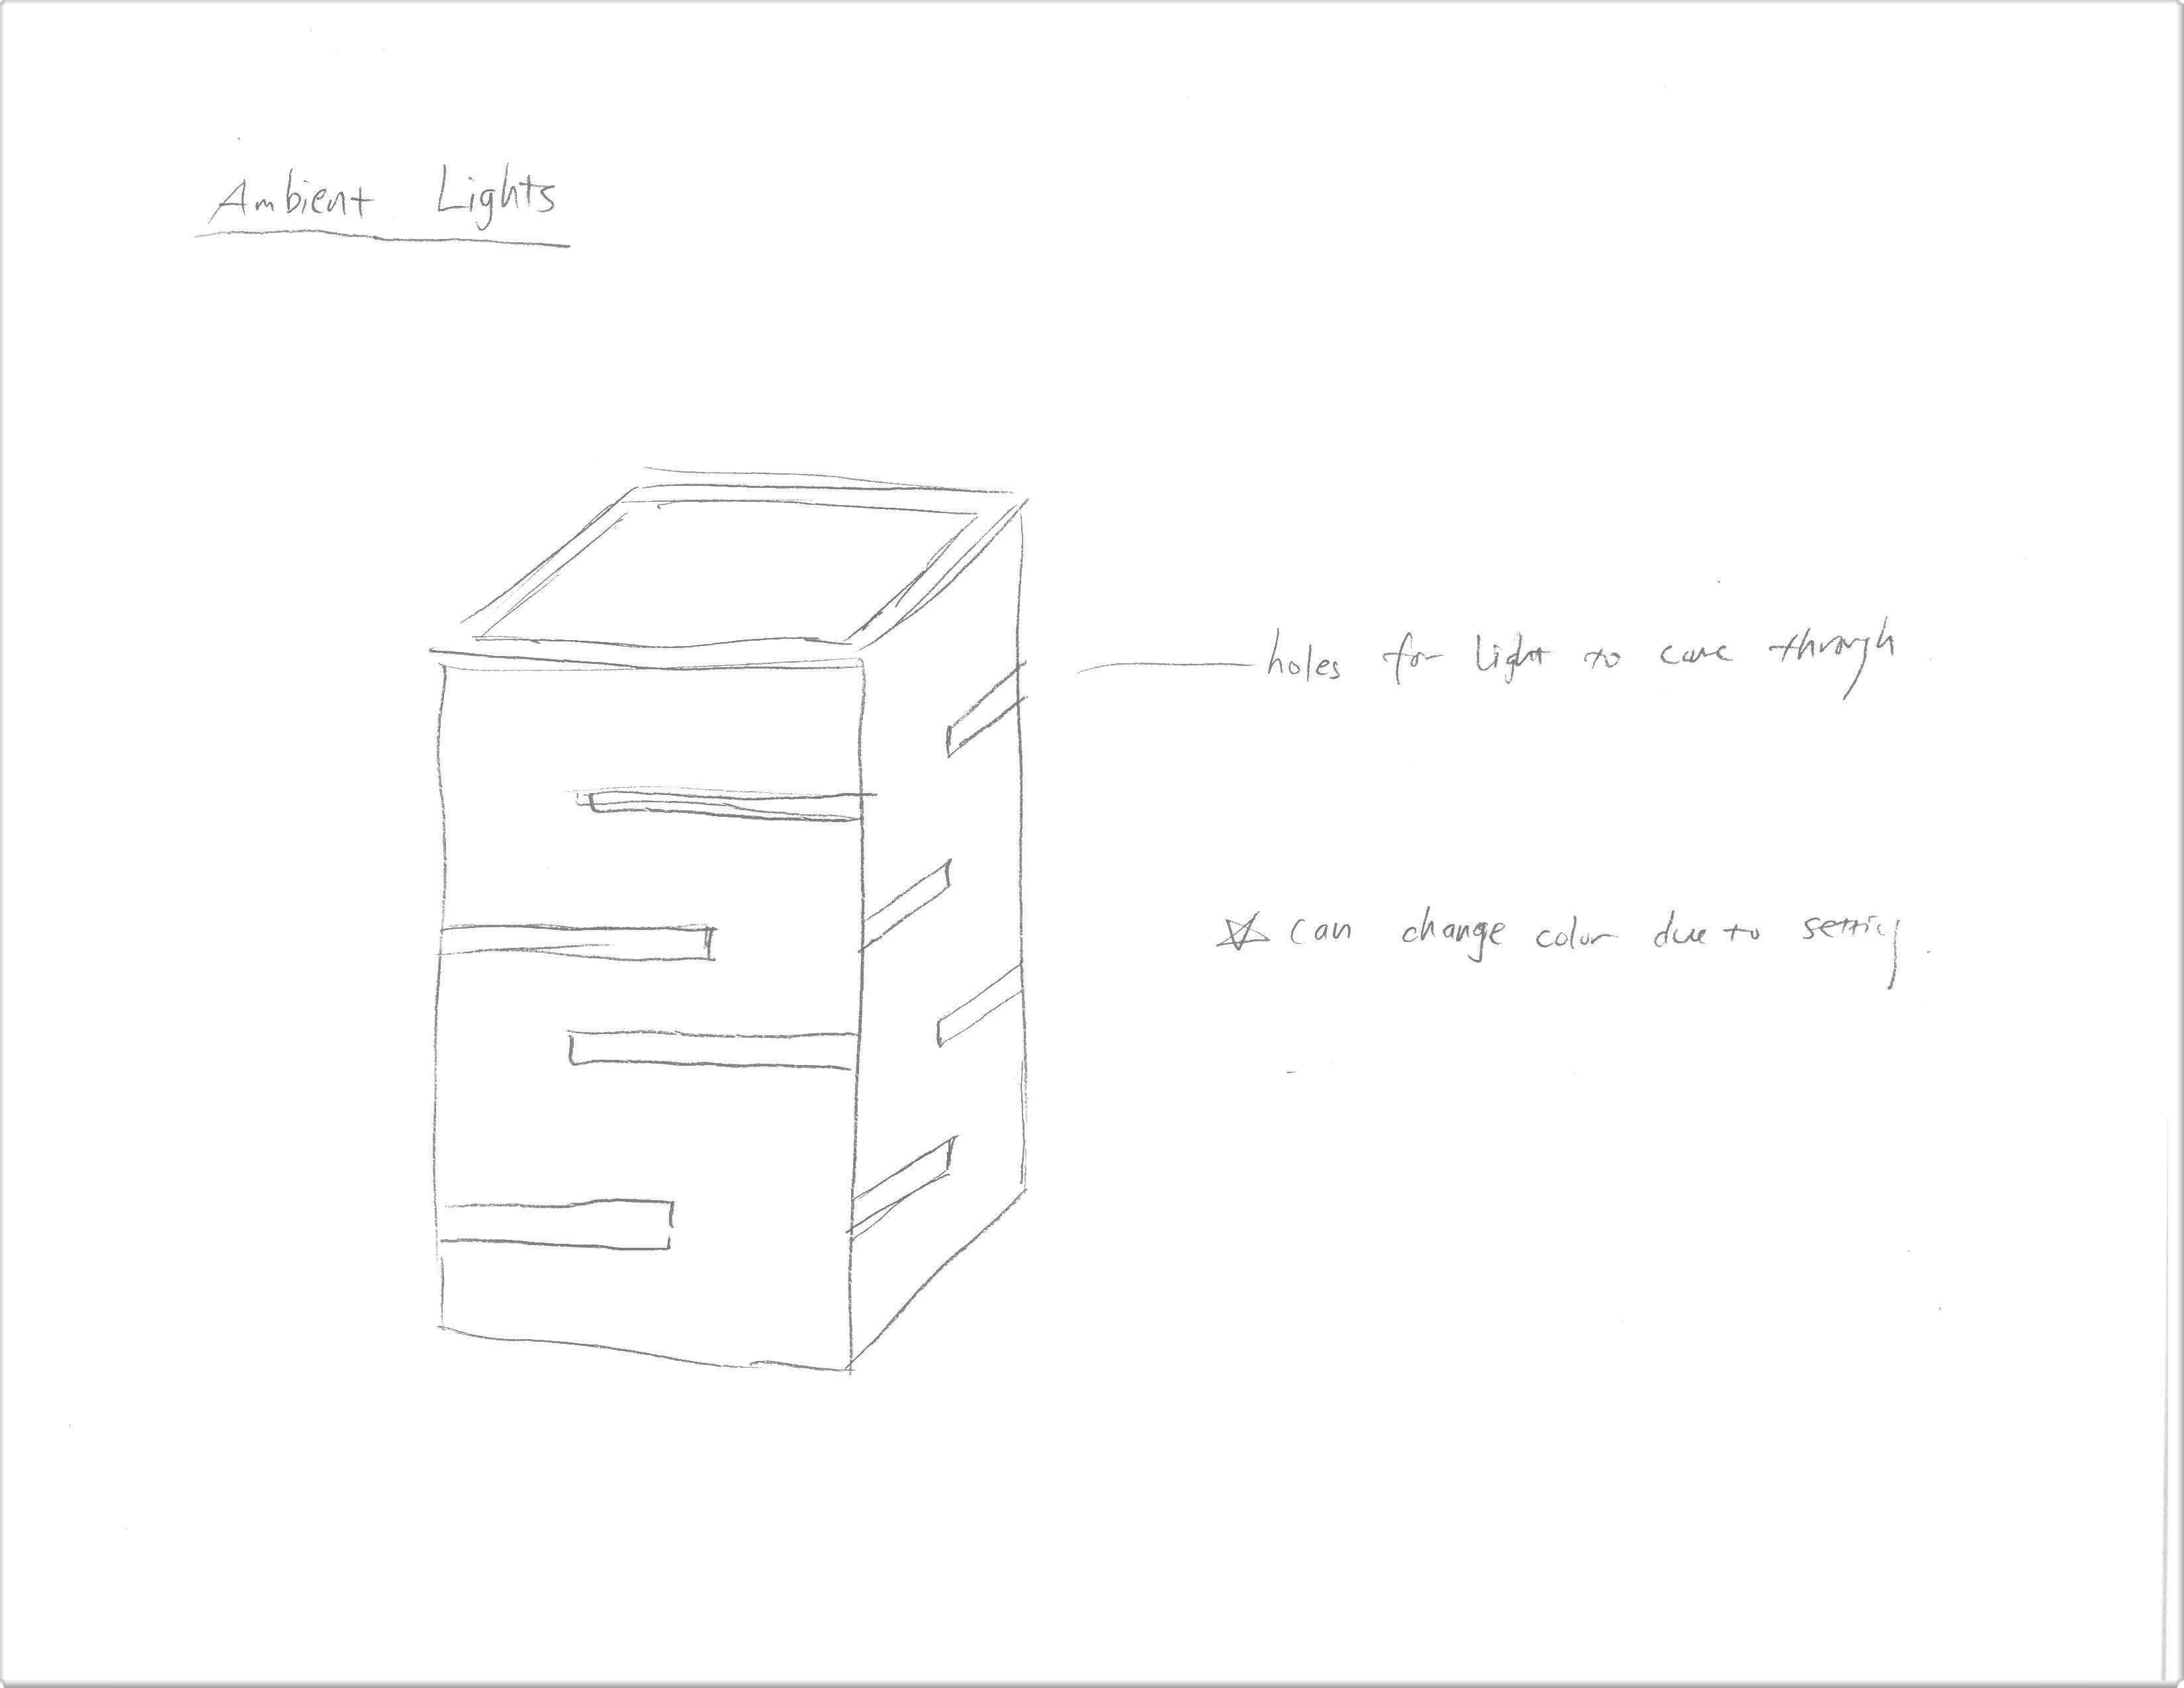 Ambient Lights
holes for light to come through
☆ can change color due to setting.